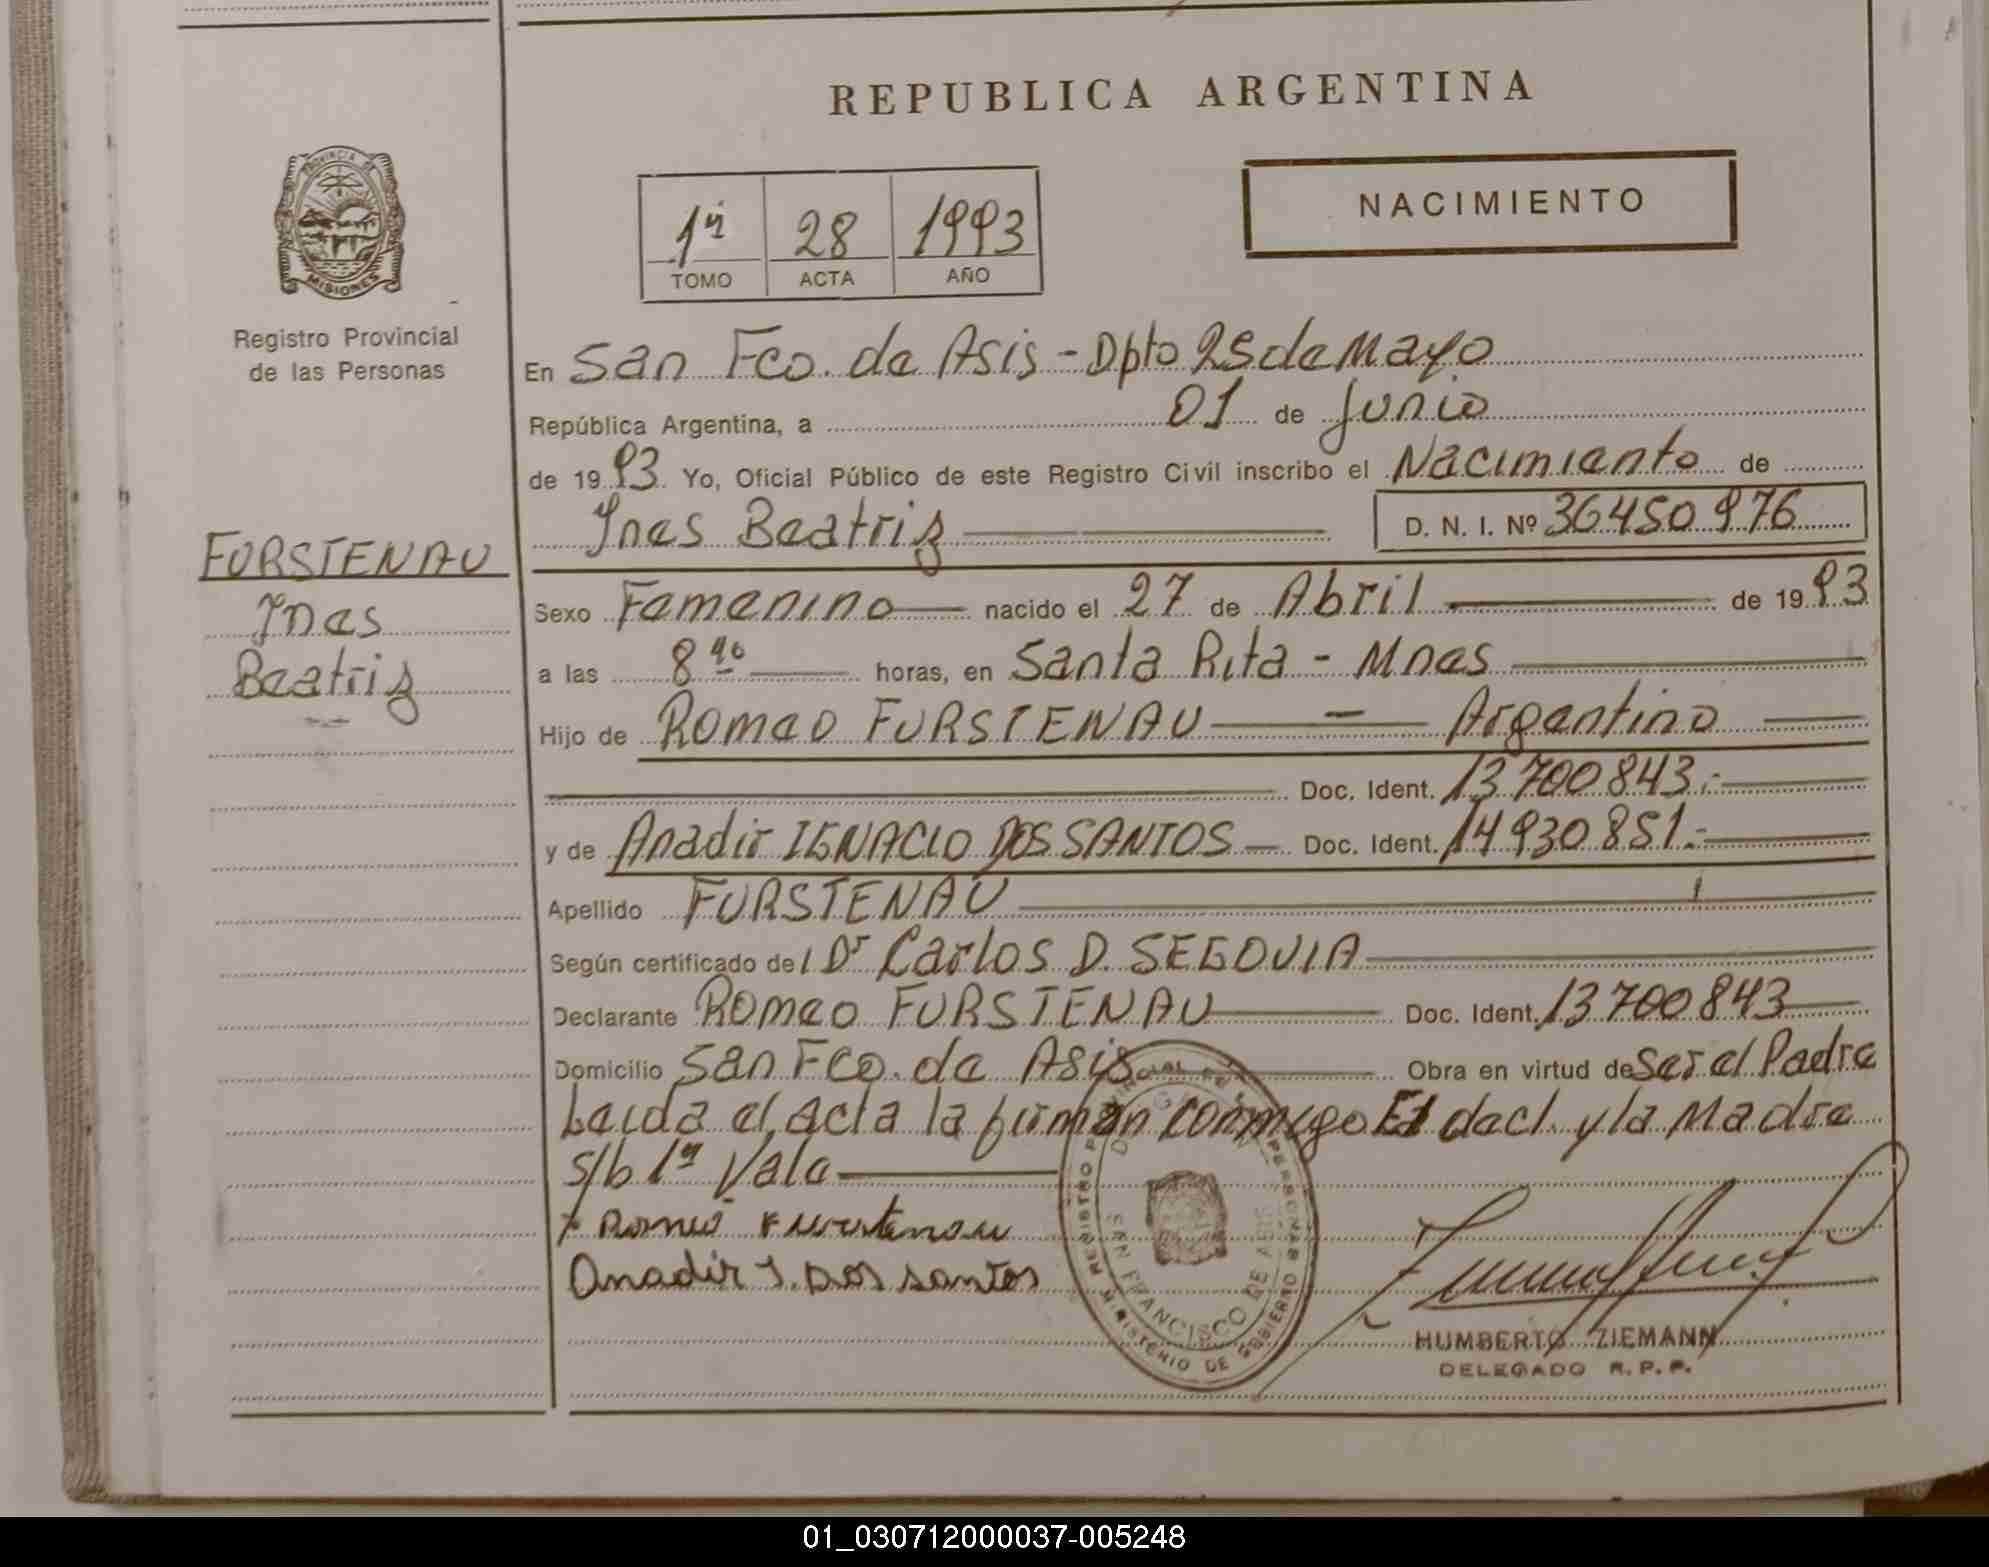 REPUBLICA ARGENTINA
PROVINCIA DE MISIONES
Registro Provincial
de las Personas
NACIMIENTO
28 1993
TOMO ACTA AÑO
En San Fco. de Asis - Dpto 25 de Mayo
República Argentina, a 01 de Junio
de 1993 Yo, Oficial Público de este Registro Civil inscribo el Nacimiento de
Ines Beatriz D. N. I. Nº 36450976
FURSTENAU
Ines
Beatriz
Sexo Femenino nacido el 27 de Abril de 1993
a las 8 horas, en Santa Rita - Mnes
Hijo de Romeo FURSTENAU - Argentino
Doc. Ident. 13700843.-
y de Anadir IGNACIO DOS SANTOS Doc. Ident. 14930851.-
Apellido FURSTENAU
Según certificado del Dr Carlos D. SEGOVIA
Declarante Romeo FURSTENAU Doc. Ident. 13700843
Domicilio San Fco. de Asis Obra en virtud de Ser el Padre
Leida el acta la firman conmigo El decl. y la Madre
s/b Vale
Anadir I. Dos santos
REGISTRO PROVINCIAL DE LAS PERSONAS
MINISTERIO DE GOBIERNO
DELEGACION
SAN FRANCISCO DE ASIS
HUMBERTO ZIEMANN
DELEGADO R. P. P.
01_030712000037-005248